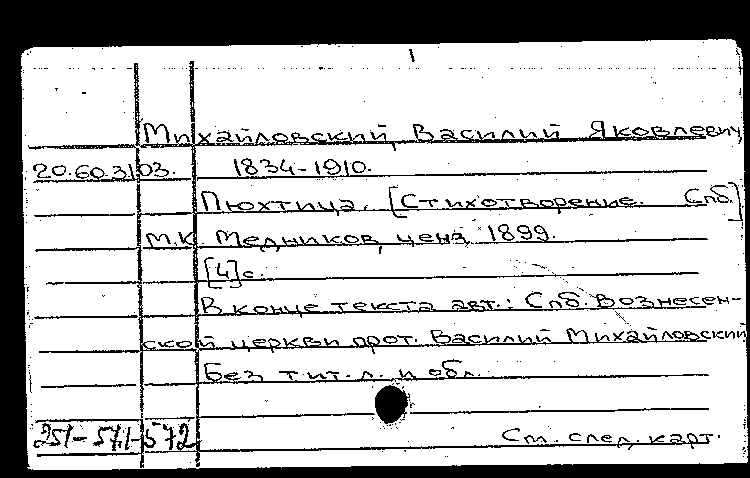 Михайловский, Василий Яковлевич
20.60.31 03. 1834-1910.
Пюхтица. [Стихотворение. Спб]
М.К. Медников, ценз. 1899.
[4]с.
В конце текста авт.: Спб. Вознесен-
ской церкви прот. Василий Михайловский
Без тит. л. и обл.
251-511-572 См. след. карт.